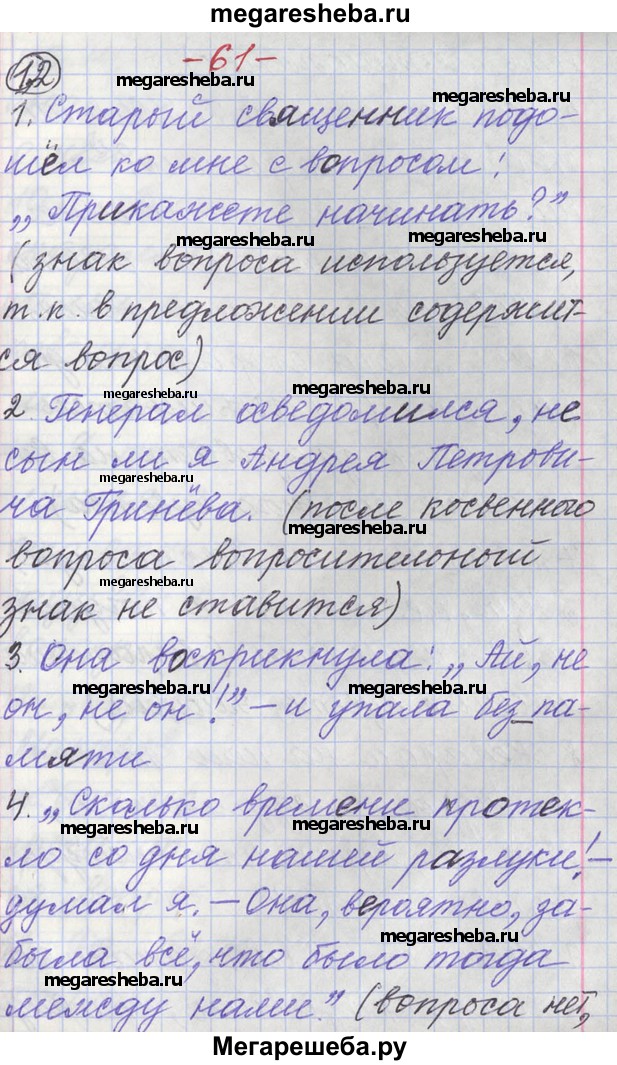 megaresheba.ru
-61-
12
megaresheba.ru
1. Старый священник подо-
шёл ко мне с вопросом:
„Прикажете начинать?”
megaresheba.ru megaresheba.ru
(знак вопроса используется,
т.к. в предложении содержит-
ся вопрос)
megaresheba.ru megaresheba.ru
2. Генерал осведомился, не
сын ли я Андрея Петрови-
megaresheba.ru
ча Гринёва. (после косвенного
megaresheba.ru
вопроса вопросительный
megaresheba.ru
знак не ставится)
3. Она вскрикнула: „Ай, не
megaresheba.ru megaresheba.ru
он, не он!” – и упала без па-
мяти
4. „Сколько времени протек-
megaresheba.ru megaresheba.ru
ло со дня нашей разлуки! –
думал я. – Она, вероятно, за-
megaresheba.ru
была всё, что было тогда
megaresheba.ru
между нами.” (вопроса нет,
Мегарешеба.ру